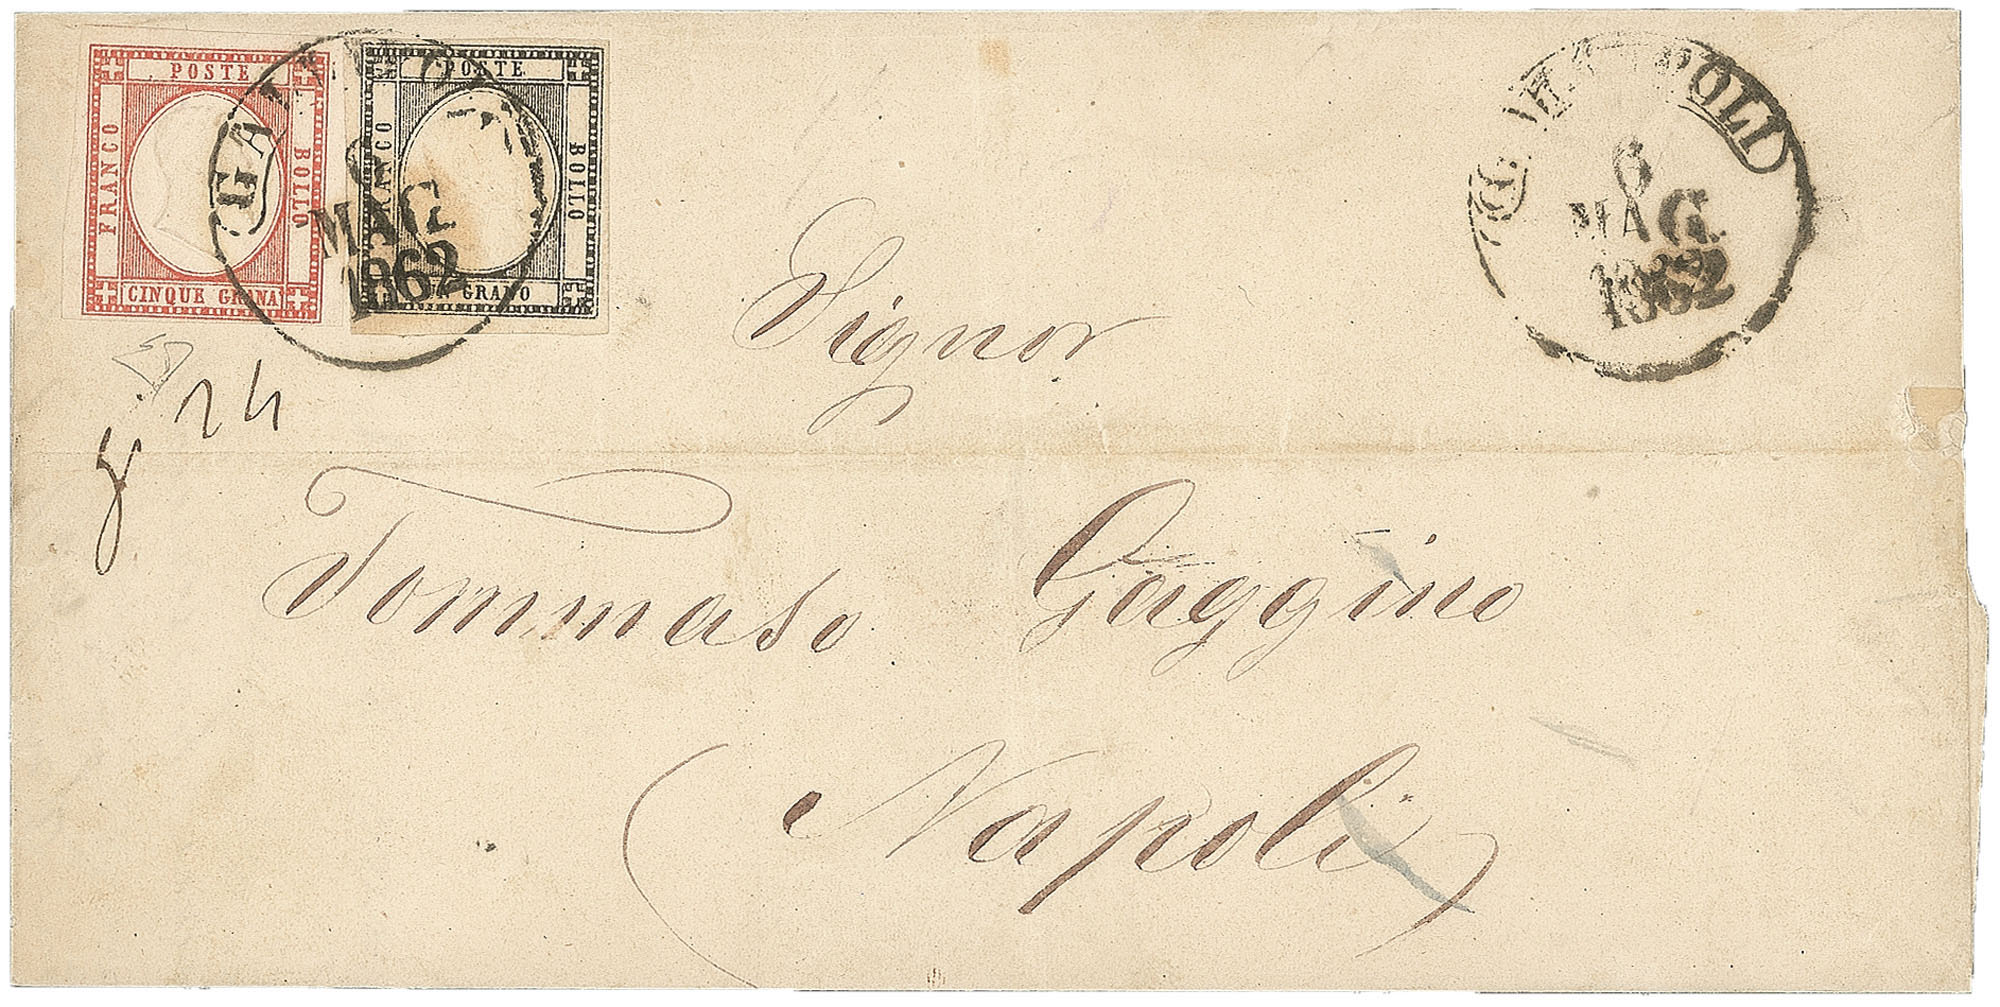 POSTE
FRANCO
BOLLO
CINQUE GRANA
POSTE
FRANCO
BOLLO
UN GRANO
GALLIPOLI
6
MAG
1862
GALLIPOLI
6
MAG
1862
24
Signor
Tommaso Gaggino
Napoli